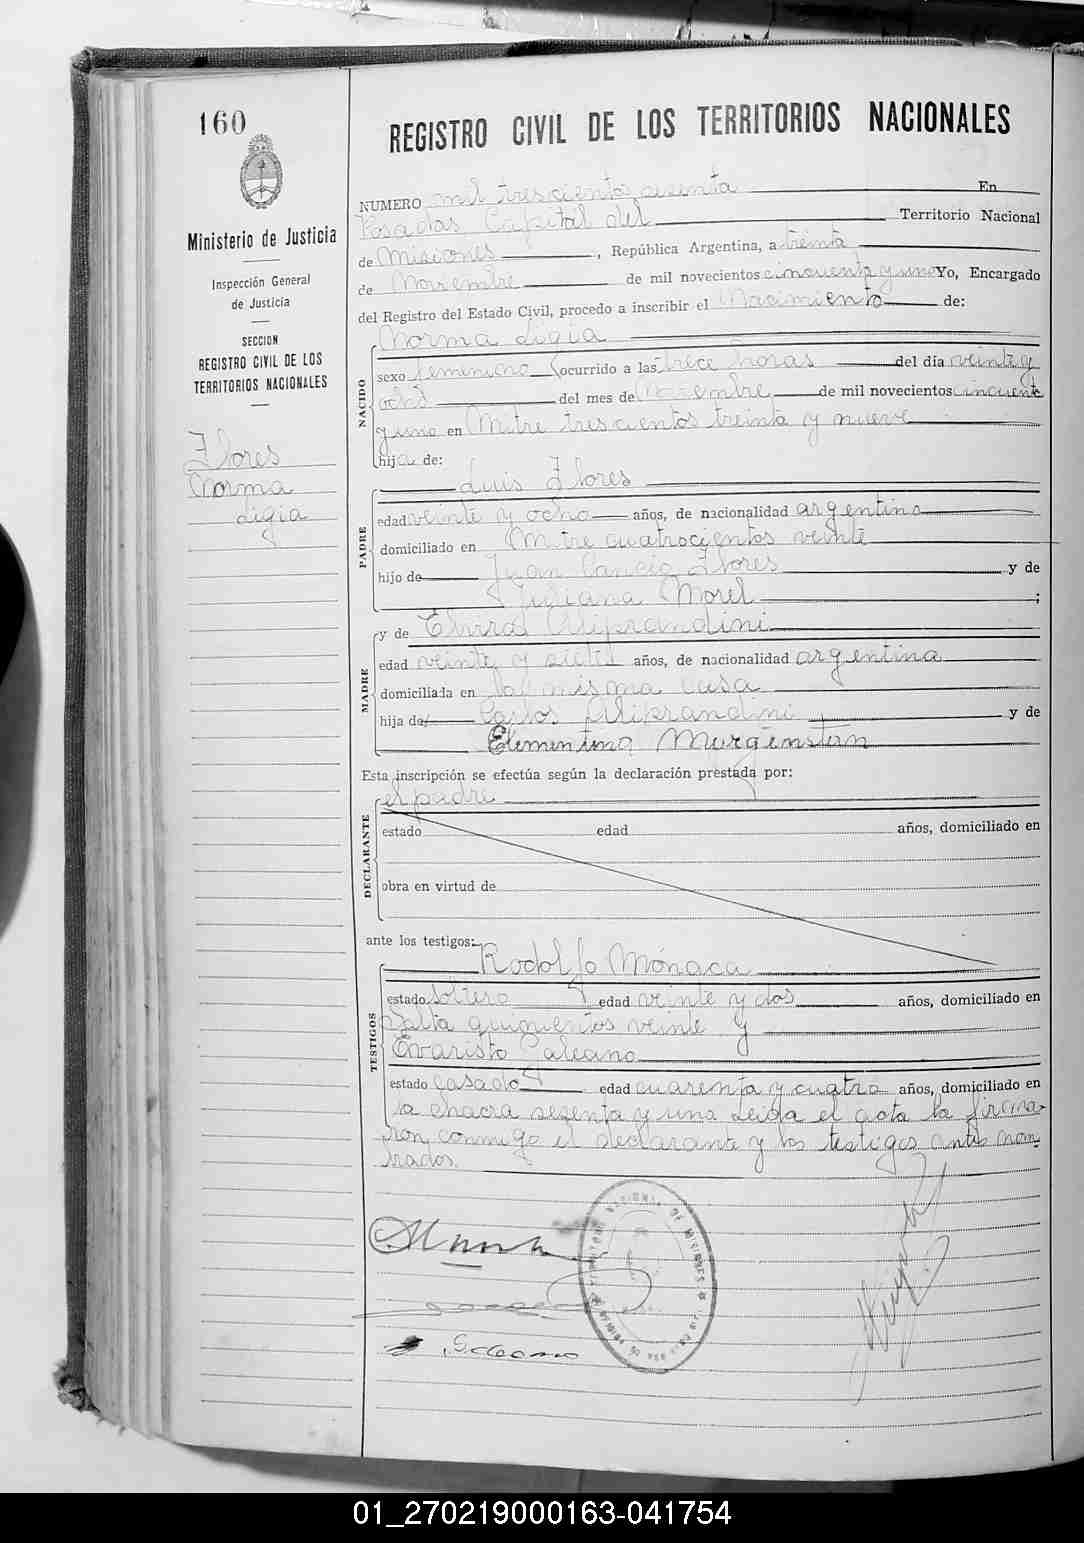 160
Ministerio de Justicia
Inspección General
de Justicia
SECCION
REGISTRO CIVIL DE LOS
TERRITORIOS NACIONALES
Flores
Norma
Ligia
REGISTRO CIVIL DE LOS TERRITORIOS NACIONALES
NUMERO mil trescientos cuenta En
Posadas Capital del Territorio Nacional
de Misiones, República Argentina, a treinta
de Noviembre de mil novecientos cincuenta y uno Yo, Encargado
del Registro del Estado Civil, procedo a inscribir el Nacimiento de:
NACIDO
Norma Ligia
sexo femenino ocurrido a las trece horas del día veinte y
ocho del mes de Noviembre de mil novecientos cincuenta
y uno en Mitre trescientos treinta y nueve
hija de:
PADRE
Luis Flores
edad veinte y ocho años, de nacionalidad argentino
domiciliado en Mitre cuatrocientos veinte
hijo de Juan Flores y de
Juliana Morel ;
MADRE
y de Aliprandini
edad veinte y siete años, de nacionalidad argentina
domiciliada en la misma casa
hija de Carlos Aliprandini y de
Clementina Murgenstern
Esta inscripción se efectúa según la declaración prestada por:
el padre
DECLARANTE
estado edad años, domiciliado en
obra en virtud de
ante los testigos:
TESTIGOS
Rodolfo Mónaca
estado soltero edad veinte y dos años, domiciliado en
Salta quinientos veinte y
Evaristo Galeano
estado casado edad cuarenta y cuatro años, domiciliado en
la chacra sesenta y una Leida el acta la firma-
ron conmigo el declarante y los testigos antes nom-
brados.
DE MISIONES
01_270219000163-041754